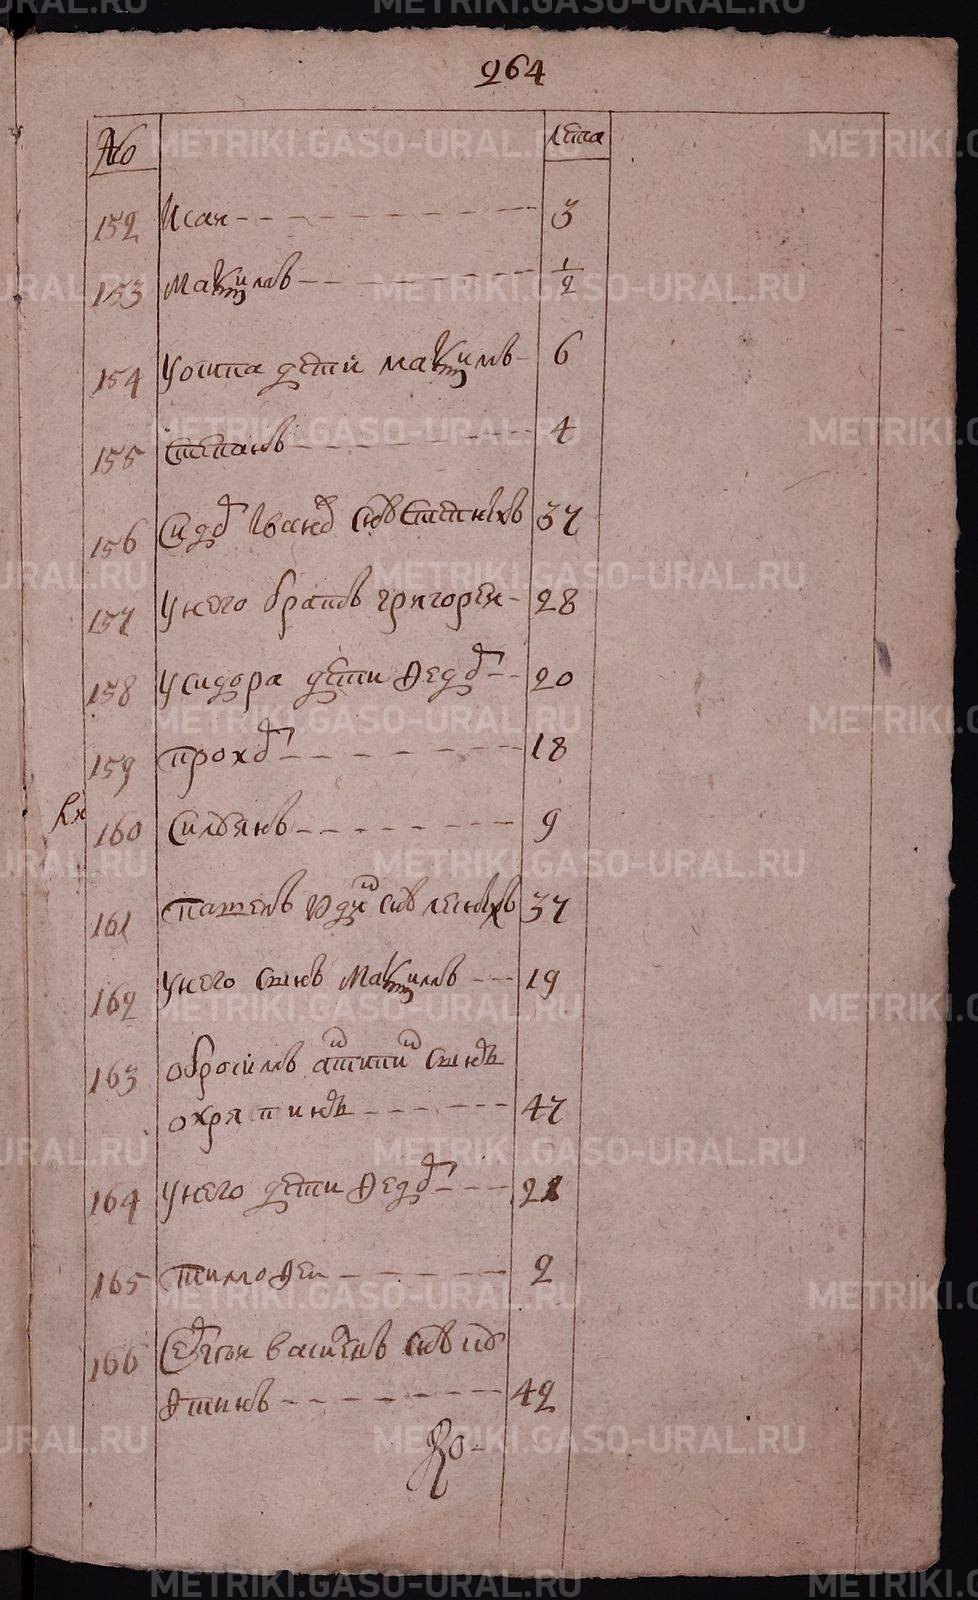 264
№ лета
152 Исаи 3
153 Максимъ 1/2
154 Уошпа дети Максимъ 6
155 Степанъ 4
156 Сидоръ Ивановъ снъ 37
157 Унего братъ григореи 28
158 Усидора дети Федоръ 20
159 Прохоръ 18
160 Силъянъ 9
161 снъ 37
162 Унего сынъ Максимъ 19
163 Обросимъ сынъ
охряпинъ 47
164 Унего дети Федоръ 21
165 Тимофеи 2
166 снъ
42
METRIKI.GASO-URAL.RU